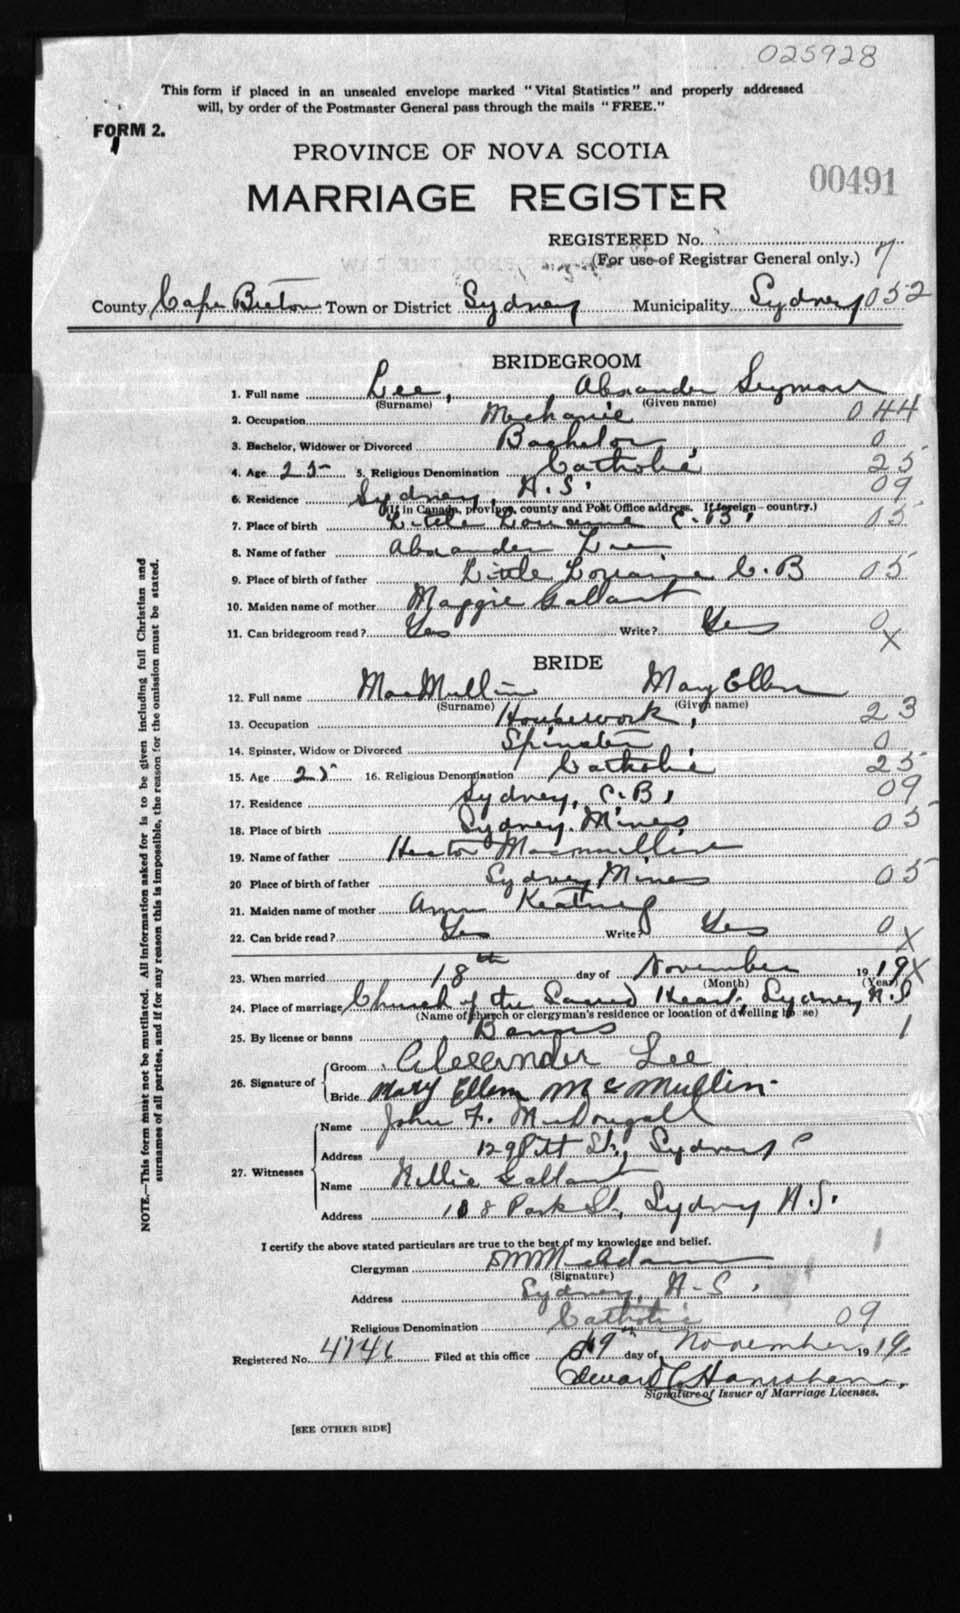 025928
This form if placed in an unsealed envelope marked "Vital Statistics" and properly addressed
will, by order of the Postmaster General pass through the mails "FREE."
FORM 2.
PROVINCE OF NOVA SCOTIA
00491
MARRIAGE REGISTER
REGISTERED No.
(For use of Registrar General only.) 7
County Cape Breton Town or District Sydney Municipality Sydney 052
BRIDEGROOM
1. Full name Lee, Alexander Seymour
(Surname) (Given name)
2. Occupation Mechanic 044
3. Bachelor, Widower or Divorced Bachelor 0
4. Age 25 5. Religious Denomination Catholic 25
6. Residence Sydney, N.S. 09
(If in Canada, province, county and Post Office address. If foreign—country.)
7. Place of birth Little Lorraine C.B. 05
8. Name of father Alexander Lee
9. Place of birth of father Little Lorraine C.B 05
10. Maiden name of mother Maggie Gallant
11. Can bridegroom read? Yes Write? Yes 0
X
BRIDE
12. Full name MacMullin Mary Ellen
(Surname) (Given name)
13. Occupation Housework, 23
14. Spinster, Widow or Divorced Spinster 0
15. Age 25 16. Religious Denomination Catholic 25
17. Residence Sydney, C.B. 09
18. Place of birth Sydney Mines 05
19. Name of father Hector Macmullin
20 Place of birth of father Sydney Mines 05
21. Maiden name of mother Ann Keating
22. Can bride read? Yes Write? Yes 0 X
23. When married 18th day of November 19 19 X
(Month) (Year)
24. Place of marriage Church of the Sacred Heart, Sydney N.S
(Name of church or clergyman's residence or location of dwelling house)
25. By license or banns Banns 1
26. Signature of Groom Alexander Lee
Bride Mary Ellen McMullin
27. Witnesses Name John F. McDougall
Address 129 Pitt St., Sydney
Name Nellie Gallant
Address 108 Park St, Sydney N.S.
I certify the above stated particulars are true to the best of my knowledge and belief.
Clergyman McAdam
(Signature)
Address Sydney, N.S.
Religious Denomination Catholic 09
Registered No. 4746 Filed at this office 19th day of November 19 19.
Edward C. Hanrahan
Signature of Issuer of Marriage Licenses.
[SEE OTHER SIDE]
NOTE.—This form must not be mutilated. All information asked for is to be given including full Christian and
surnames of all parties, and if for any reason this is impossible, the reason for the omission must be stated.